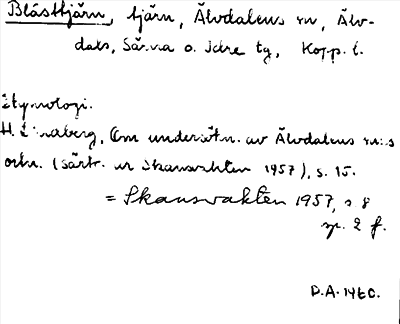 Blåsttjärn, tjärn, Älvdalens sn, Älv-
dals, Särna o. Idre tg, Kopp. l.
Etymologi.
H. Linaberg, Om undersökn. av Älvdalens sn:s
ortn. (särtr. ur Skansvakten 1957), s. 15.
= Skansvakten 1957, s. 8
sp. 2 f.
D.A. 1960.